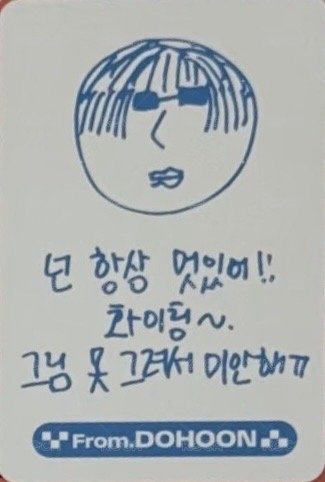 넌 항상 멋있어!!
화이팅~.
그림 못 그려서 미안해ㅠ
From.DOHOON